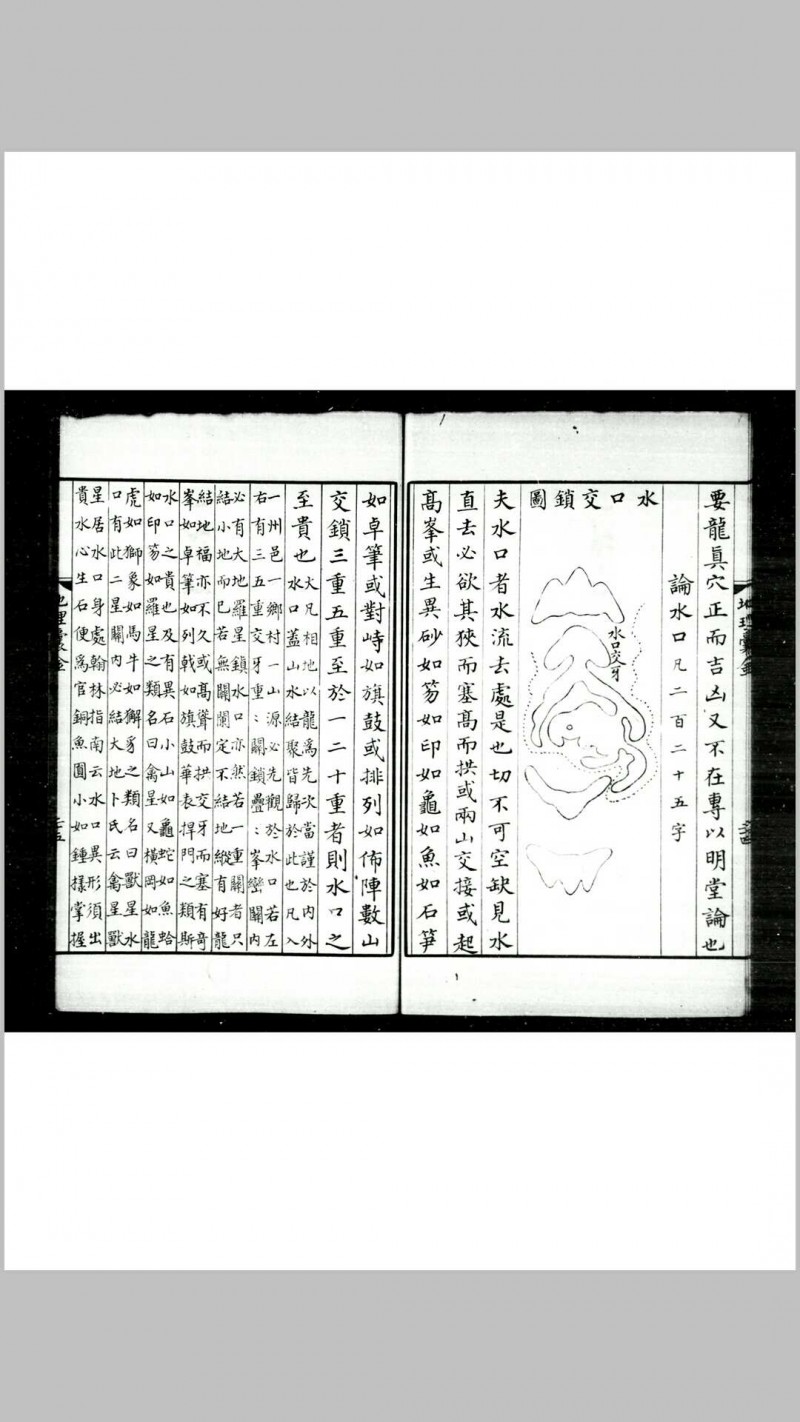 要龍眞穴正而吉凶又不在專以明堂論也
論水口凡二百二十五字
水口交鎖圖
水口交牙
夫水口者水流去處是也切不可空缺見水
直去必欲其狹而塞高而拱或兩山交接或起
高峯或生異砂如笏如印如龜如魚如石笋
如卓筆或對峙如旗鼓或排列如佈陣數山
交鎖三重五重至於一二十重者則水口之
至貴也
大凡相地以龍爲先次當謹於内外
水口蓋山水結聚皆歸於此也凡入
一州邑一鄉村一山源必先觀於水口若左
右有三五重交牙重〻關鎖疊〻峯巒關内
必有大地羅星鎮水口亦然若一重關者只
結小地而已若無關闌定不結地縱有好龍
結地福亦不久或高聳而拱交牙而塞有奇
峯如卓筆如列戟如旗鼓華表捍門之類斯
水口之貴也及有異石小山如龜蛇如魚蛤
如印笏如羅星之類名曰禽星又橫岡如龍
虎如獅象如馬牛如獬豸之類名曰獸星水
口有此二星關内必結大地卜氏云禽星獸
星居水口身處翰林指南云水口異形須出
貴水心生石便爲官銅魚圓小如錘樣掌握
地理囊金